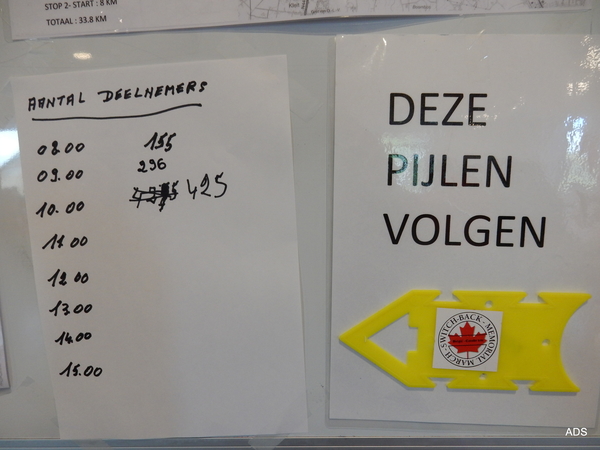 STOP 2- START : 8 KM
TOTAAL : 33.8 KM
AANTAL DEELNEMERS
08.00 155
09.00 296
10.00 425
11.00
12.00
13.00
14.00
15.00
DEZE
PIJLEN
VOLGEN
SWITCH-BACK - MEMORIAL MARCH -
ADS